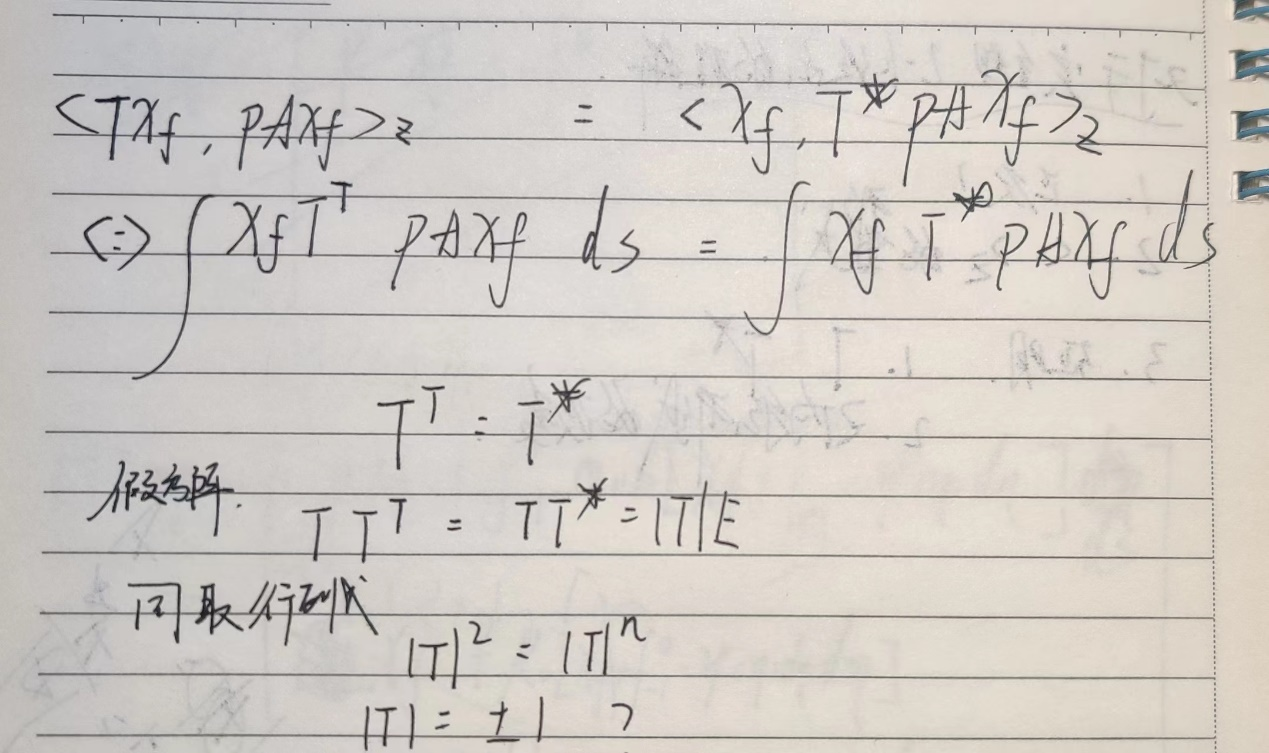 <TXf, PAXf>z = <Xf, T* PAXf>z
<=> ∫ Xf T^T PAXf ds = ∫ Xf T* PAXf ds
T^T = T*
假设方阵. T T^T = T T* = |T|E
同取行列式
|T|^2 = |T|^n
|T| = ±1 ?